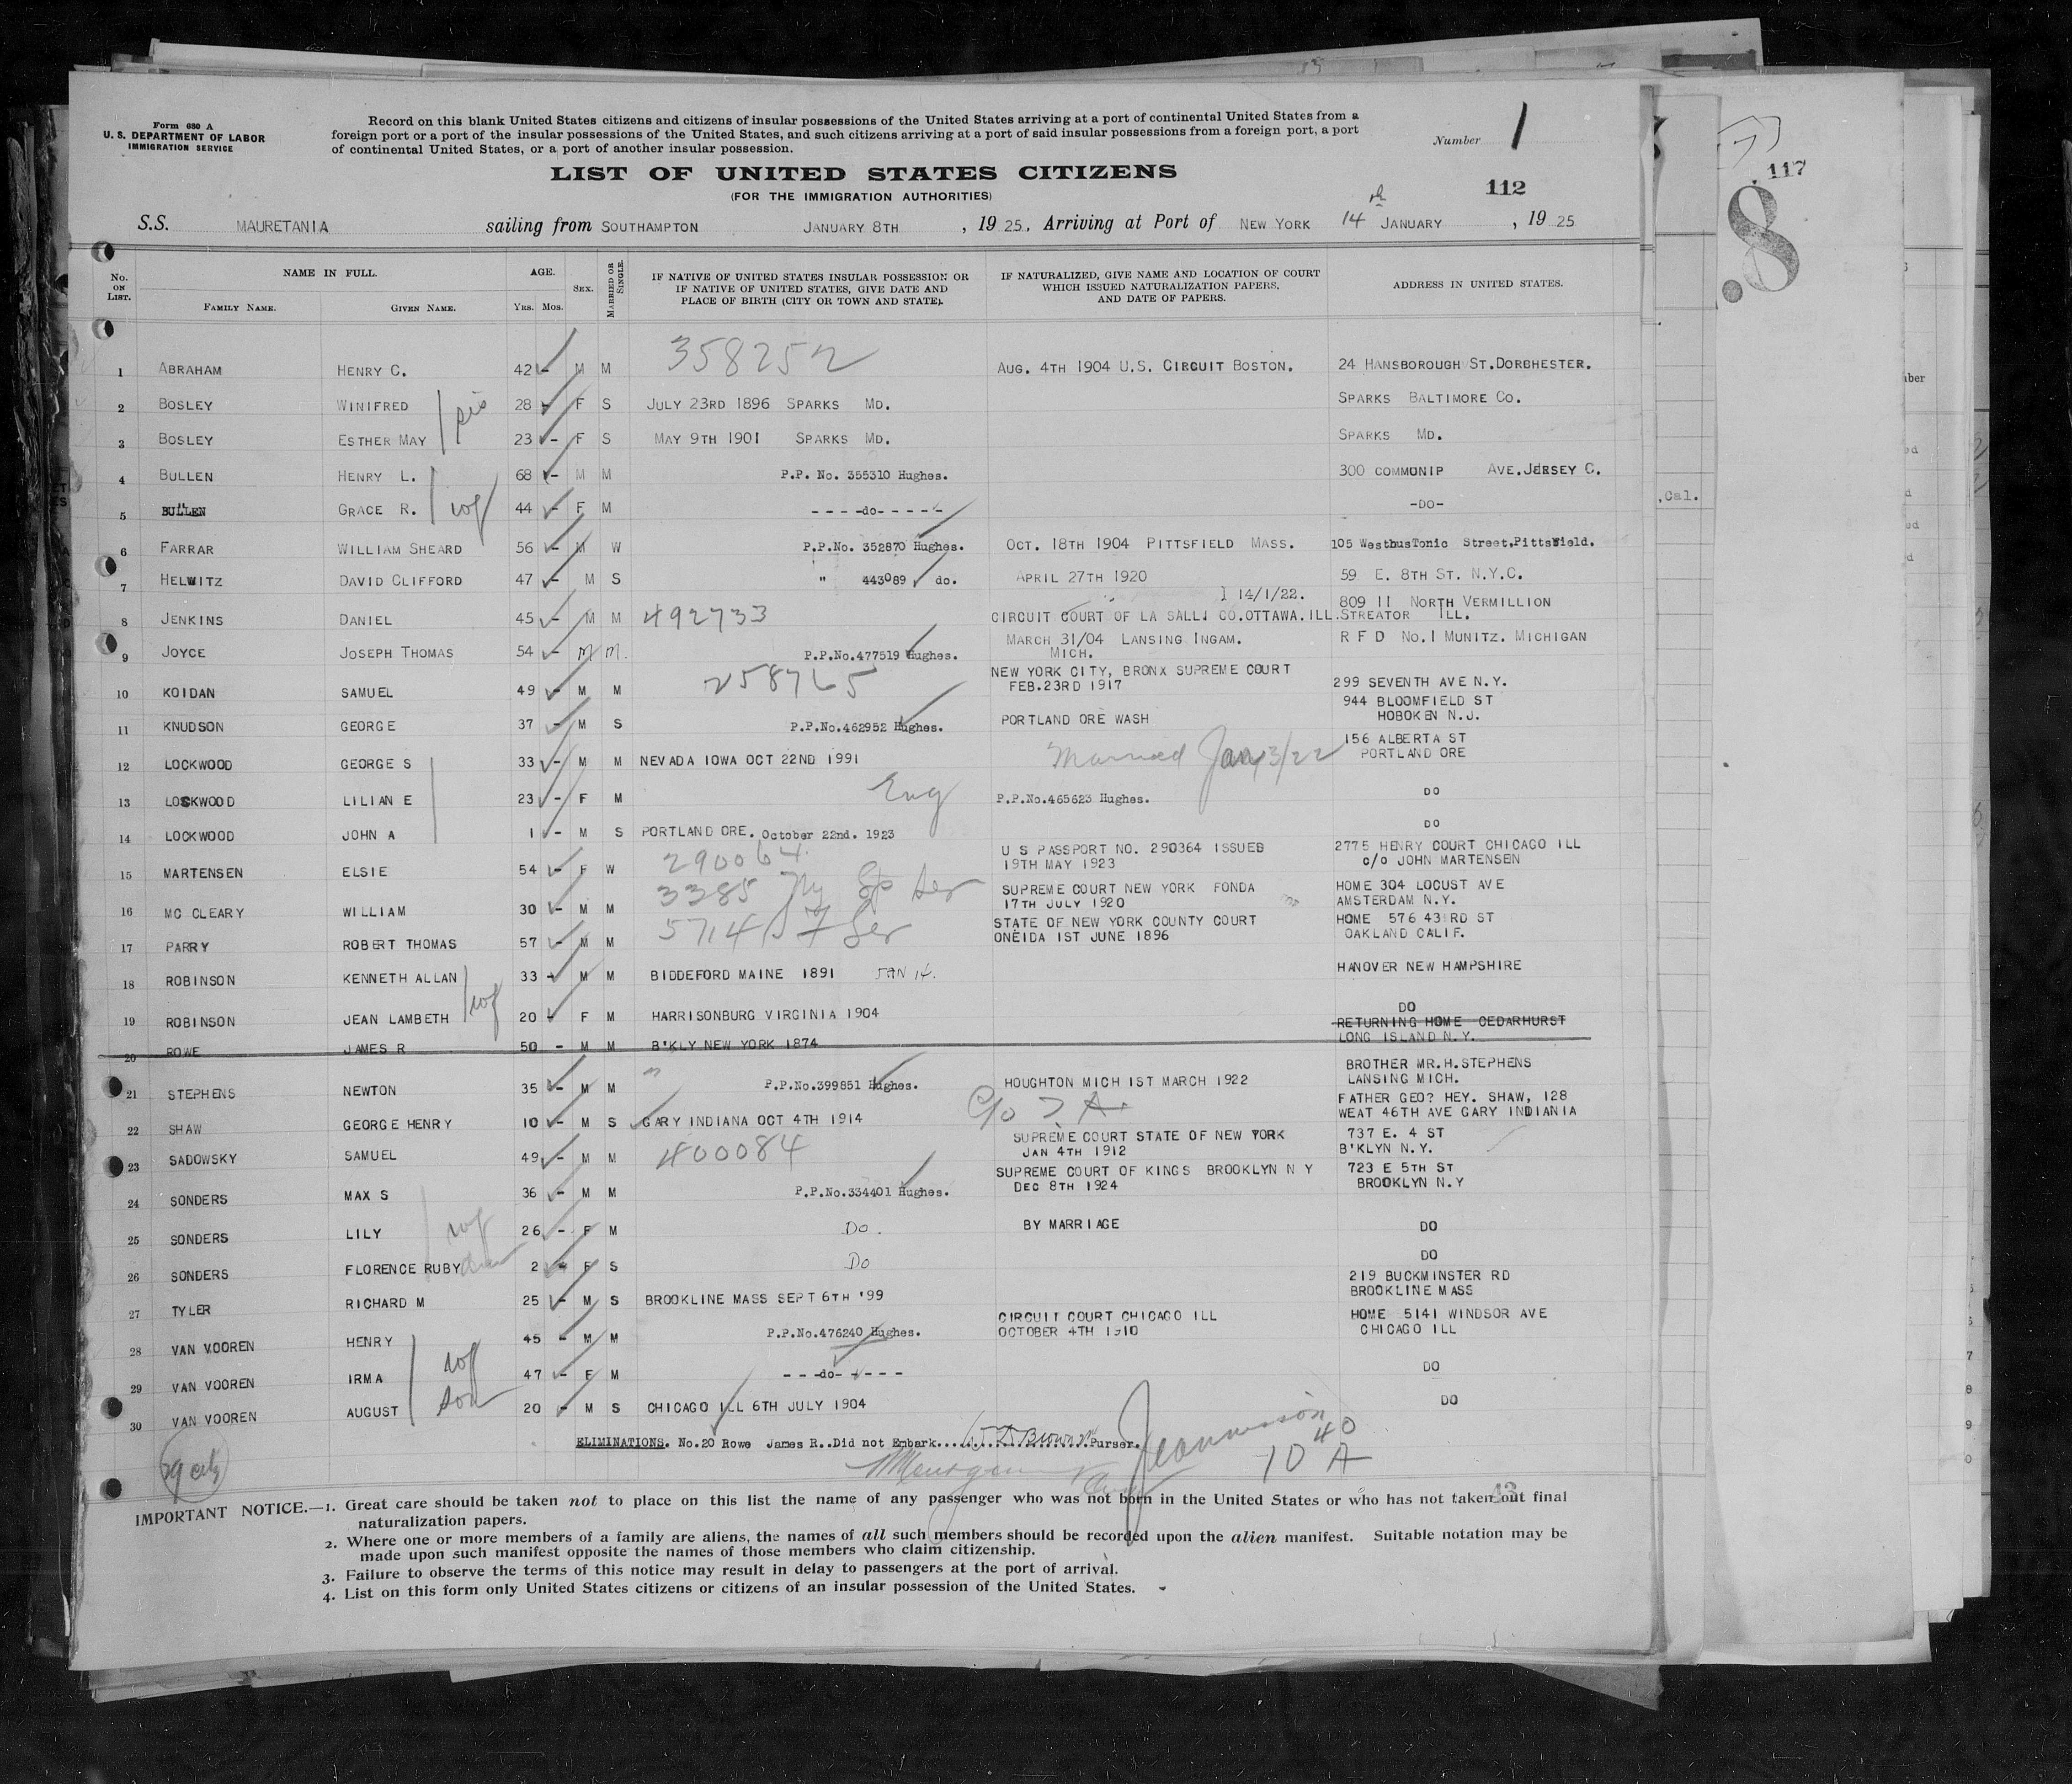 Form 680 A
U. S. DEPARTMENT OF LABOR
IMMIGRATION SERVICE
Record on this blank United States citizens and citizens of insular possessions of the United States arriving at a port of continental United States from a
foreign port or a port of the insular possessions of the United States, and such citizens arriving at a port of said insular possessions from a foreign port, a port
of continental United States, or a port of another insular possession.
Number 1
LIST OF UNITED STATES CITIZENS
(FOR THE IMMIGRATION AUTHORITIES)
112
117
8.
S.S. MAURETANIA sailing from SOUTHAMPTON JANUARY 8TH, 1925, Arriving at Port of NEW YORK 14th JANUARY, 1925
No. ON LIST. NAME IN FULL. FAMILY NAME. GIVEN NAME. AGE. Yrs. Mos. SEX. MARRIED OR SINGLE. IF NATIVE OF UNITED STATES INSULAR POSSESSION OR IF NATIVE OF UNITED STATES, GIVE DATE AND PLACE OF BIRTH (CITY OR TOWN AND STATE). IF NATURALIZED, GIVE NAME AND LOCATION OF COURT WHICH ISSUED NATURALIZATION PAPERS, AND DATE OF PAPERS. ADDRESS IN UNITED STATES.
1 ABRAHAM HENRY C. 42 - M M 358252 AUG. 4TH 1904 U.S. CIRCUIT BOSTON. 24 HANSBOROUGH ST. DORCHESTER.
2 BOSLEY WINIFRED sis 28 - F S JULY 23RD 1896 SPARKS MD. SPARKS BALTIMORE CO.
3 BOSLEY ESTHER MAY 23 - F S MAY 9TH 1901 SPARKS MD. SPARKS MD.
4 BULLEN HENRY L. 68 - M M P.P. No. 355310 Hughes. 300 COMMUNIP AVE. JERSEY C.
5 BULLEN GRACE R. wf 44 - F M - - - -do- - - - - -DO-
6 FARRAR WILLIAM SHEARD 56 - M W P.P.No. 352870 Hughes. OCT. 18TH 1904 PITTSFIELD MASS. 105 WesthusTonic Street, Pittsfield.
7 HELWITZ DAVID CLIFFORD 47 - M S " 443089 do. APRIL 27TH 1920 59 E. 8TH ST. N.Y.C.
8 JENKINS DANIEL 45 - M M 492733 1 14/1/22. CIRCUIT COURT OF LA SALLI CO. OTTAWA. ILL. 809 11 NORTH VERMILLION STREATOR ILL.
9 JOYCE JOSEPH THOMAS 54 - M M. P.P.No.477519 Hughes. MARCH 31/04 LANSING INGAM. MICH. R F D No.1 MUNITZ. MICHIGAN
10 KOIDAN SAMUEL 49 - M M NEW YORK CITY, BRONX SUPREME COURT FEB.23RD 1917 299 SEVENTH AVE N.Y.
11 KNUDSON GEORGE 37 - M S P.P.No.462952 Hughes. PORTLAND ORE WASH 944 BLOOMFIELD ST HOBOKEN N.J.
12 LOCKWOOD GEORGE S 33 - M M NEVADA IOWA OCT 22ND 1991 Married Jan 3/22 156 ALBERTA ST PORTLAND ORE
13 LOCKWOOD LILIAN E 23 - F M Eng P.P.No.465623 Hughes. DO
14 LOCKWOOD JOHN A 1 - M S PORTLAND ORE. October 22nd. 1923 DO
15 MARTENSEN ELSIE 54 - F W 290064 U S PASSPORT NO. 290364 ISSUED 19TH MAY 1923 2775 HENRY COURT CHICAGO ILL c/o JOHN MARTENSEN
16 MC CLEARY WILLIAM 30 - M M 3385 SUPREME COURT NEW YORK FONDA 17TH JULY 1920 HOME 304 LOCUST AVE AMSTERDAM N.Y.
17 PARRY ROBERT THOMAS 57 - M M 5714 STATE OF NEW YORK COUNTY COURT ONEIDA 1ST JUNE 1896 HOME 576 43RD ST OAKLAND CALIF.
18 ROBINSON KENNETH ALLAN 33 - M M BIDDEFORD MAINE 1891 JAN 14. HANOVER NEW HAMPSHIRE
19 ROBINSON JEAN LAMBETH wf 20 - F M HARRISONBURG VIRGINIA 1904 DO
20 ROWE JAMES R 50 - M M B'KLY NEW YORK 1874 RETURNING HOME CEDARHURST LONG ISLAND N.Y.
21 STEPHENS NEWTON 35 - M M P.P.No.399851 Hughes. HOUGHTON MICH 1ST MARCH 1922 BROTHER MR.H.STEPHENS LANSING MICH.
22 SHAW GEORGE HENRY 10 - M S GARY INDIANA OCT 4TH 1914 FATHER GEO? HEY. SHAW, 128 WEAT 46TH AVE GARY INDIANIA
23 SADOWSKY SAMUEL 49 - M M 400084 SUPREME COURT STATE OF NEW YORK JAN 4TH 1912 737 E. 4 ST B'KLYN N.Y.
24 SONDERS MAX S 36 - M M P.P.No.334401 Hughes. SUPREME COURT OF KINGS BROOKLYN N Y DEC 8TH 1924 723 E 5TH ST BROOKLYN N.Y
25 SONDERS LILY wf 26 - F M Do. BY MARRIAGE DO
26 SONDERS FLORENCE RUBY 2 - F S Do DO
27 TYLER RICHARD M 25 - M S BROOKLINE MASS SEPT 6TH '99 219 BUCKMINSTER RD BROOKLINE MASS
28 VAN VOOREN HENRY 45 - M M P.P.No.476240 Hughes. CIRCUIT COURT CHICAGO ILL OCTOBER 4TH 1910 HOME 5141 WINDSOR AVE CHICAGO ILL
29 VAN VOOREN IRMA wf 47 - F M - - -do- - - - - DO
30 VAN VOOREN AUGUST son 20 - M S CHICAGO ILL 6TH JULY 1904 DO
ELIMINATIONS. No.20 Rowe James R..Did not Embark.....Purser.
40
10 A
IMPORTANT NOTICE.—1. Great care should be taken not to place on this list the name of any passenger who was not born in the United States or who has not taken out final
naturalization papers.
2. Where one or more members of a family are aliens, the names of all such members should be recorded upon the alien manifest. Suitable notation may be
made upon such manifest opposite the names of those members who claim citizenship.
3. Failure to observe the terms of this notice may result in delay to passengers at the port of arrival.
4. List on this form only United States citizens or citizens of an insular possession of the United States.
, Cal.